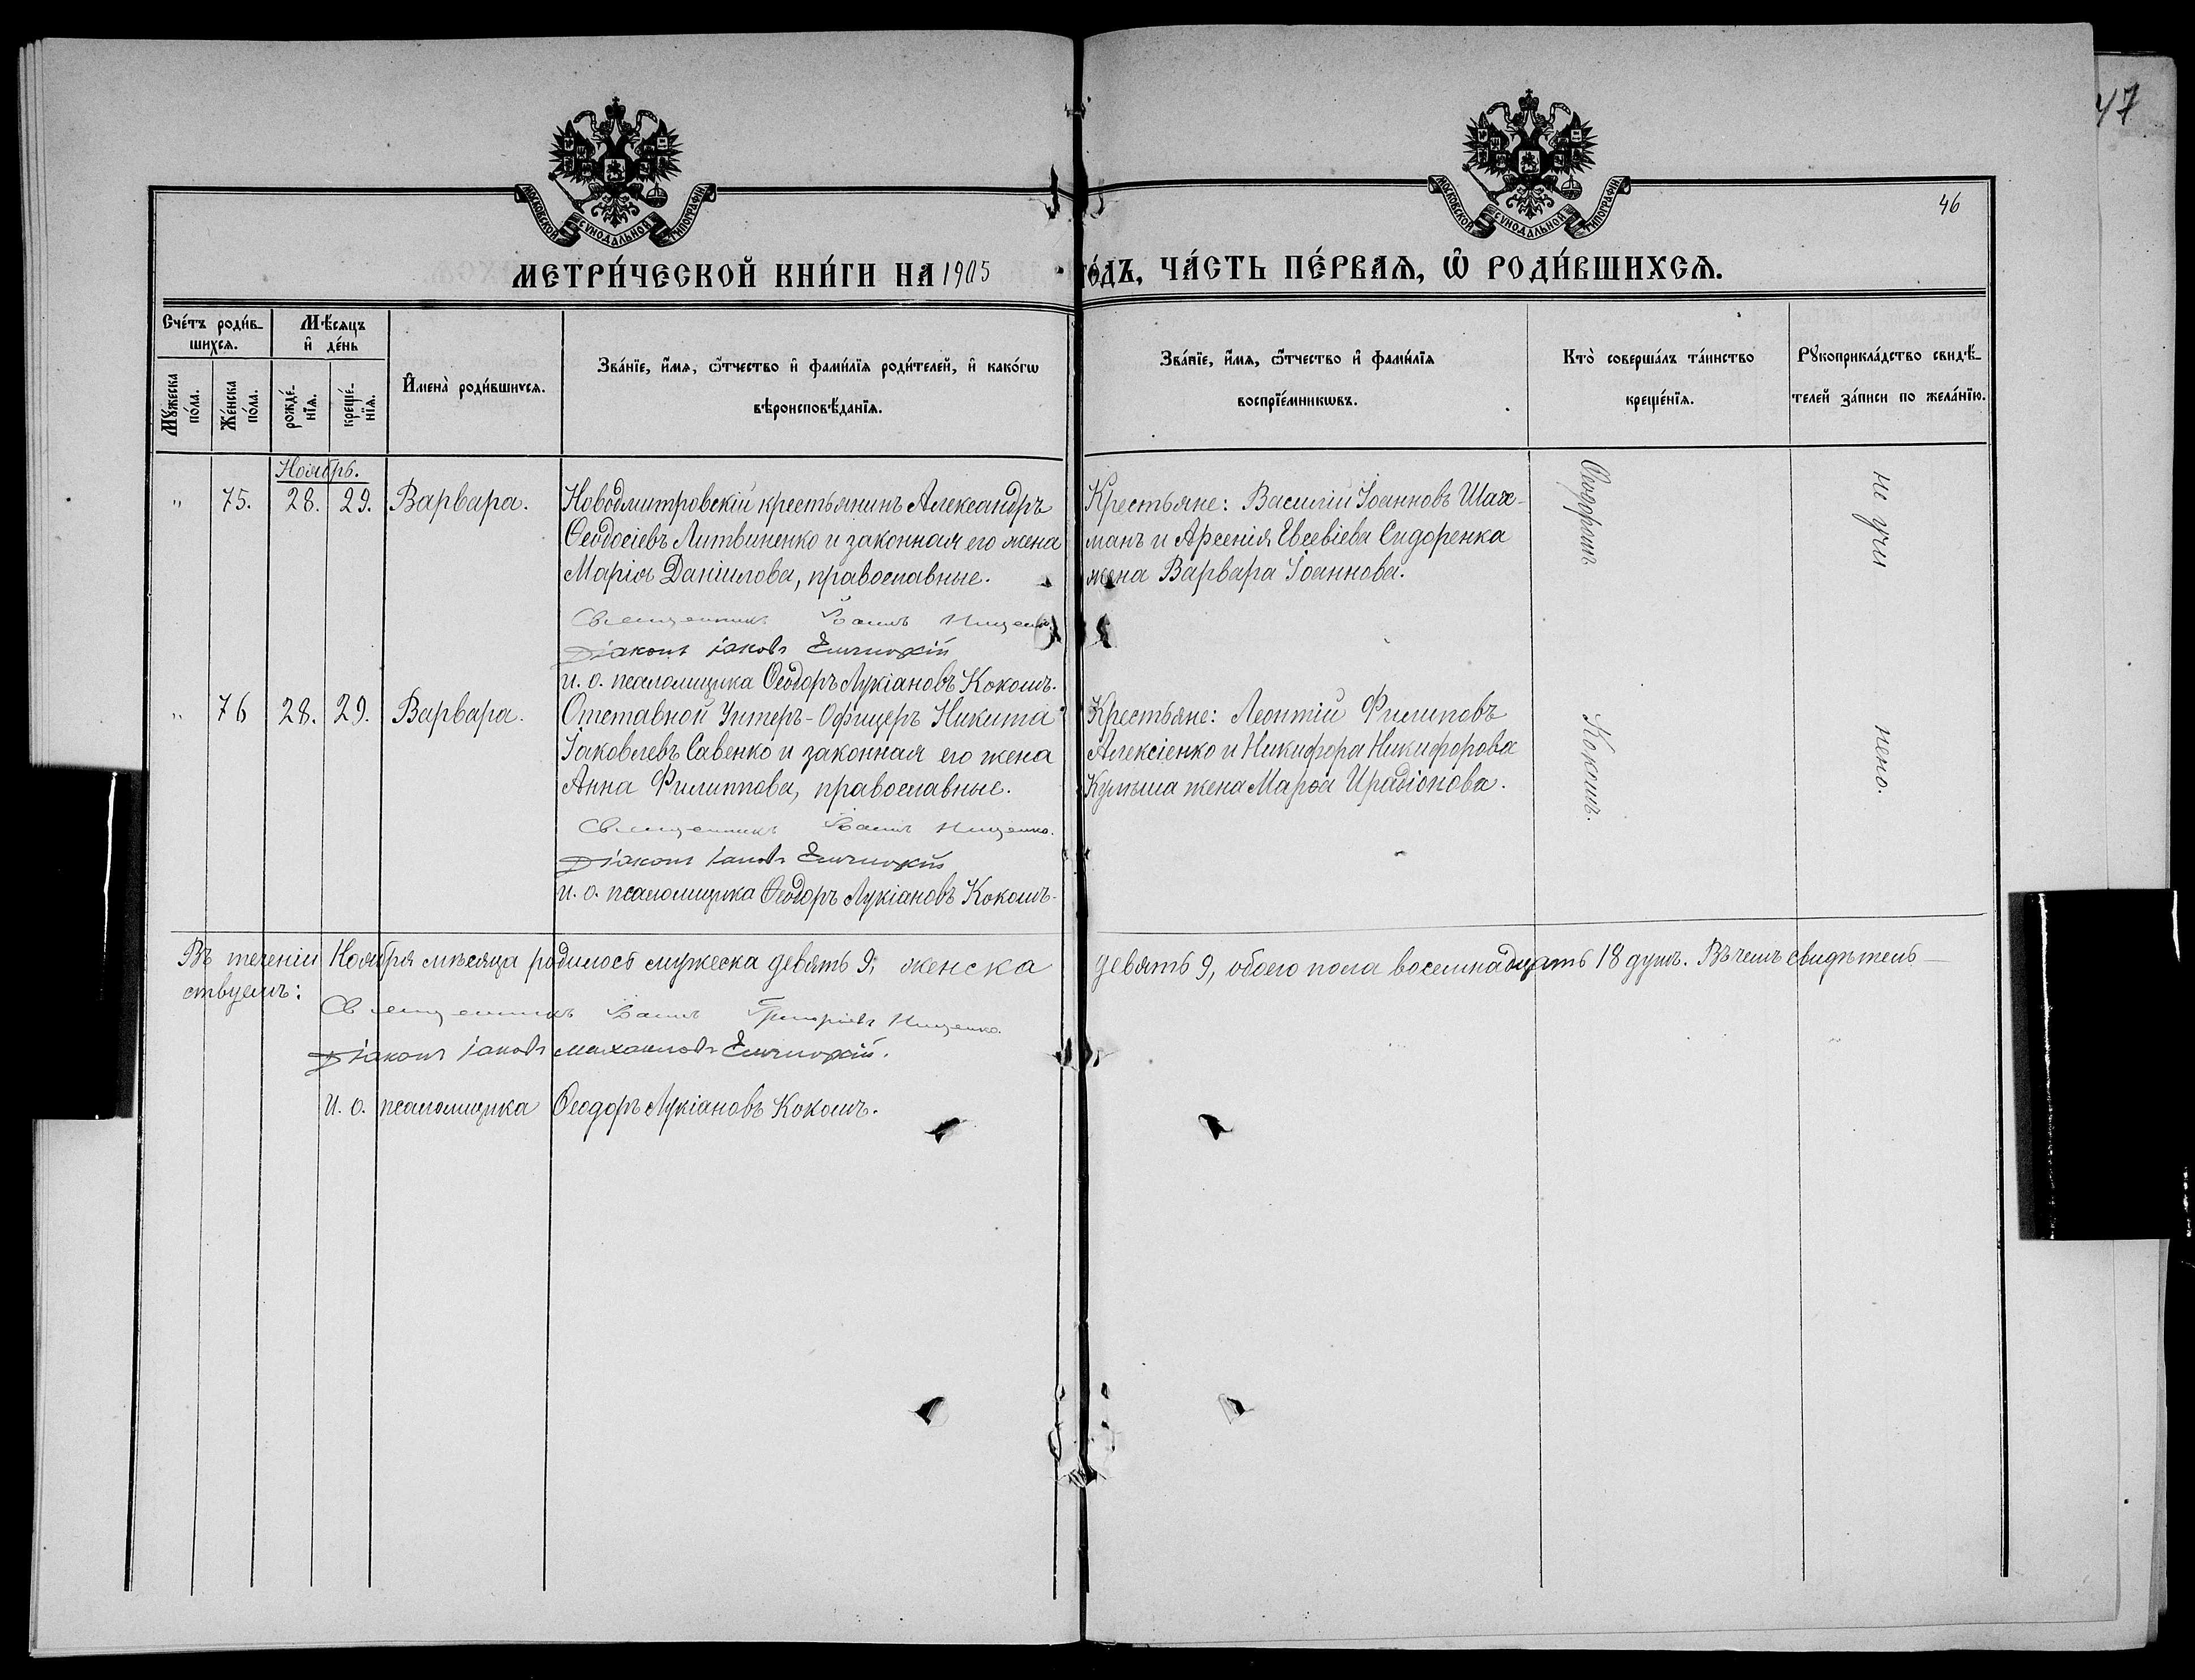 47
МОСКОВСКОЙ СУНОДАЛЬНОЙ ТИПОГРАФІИ
МОСКОВСКОЙ СУНОДАЛЬНОЙ ТИПОГРАФІИ
46
МЕТРИ́ЧЕСКОЙ КНИ́ГИ НА 1905 го́дъ, ЧА́СТЬ ПЕ́РВАѦ, Ѡ҆ РОДИ́ВШИХСѦ.
Сче́тъ роди́в-
шихсѧ.
Мꙋ́жеска
по́ла.
Же́нска
по́ла.
Мѣ́сѧцъ
и҆ де́нь
рожде́-
нїѧ.
креще́-
нїѧ.
И҆мена̀ роди́вшихсѧ.
Зва́нїе, и҆́мѧ, ѻ҆́тчество и҆ фами́лїѧ роди́телей, и҆ како́гѡ
вѣроисповѣ́данїѧ.
Зва́нїе, и҆́мѧ, ѻ҆́тчество и҆ фами́лїѧ
воспрїе́мникѡвъ.
Кто̀ соверша́лъ та́инство
креще́нїѧ.
Рꙋкоприкла́дство свидѣ́-
телей за́писи по жела́нїю.
Ноябрь.
" 75. 28. 29. Варвара.
Новодмитровскій крестьянинъ Александръ
Ѳеодосіевъ Литвиненко и законная его жена
Марія Даніилова, православные.
Священникъ Іоаннъ Нищенко
Діаконъ Іаковъ
и. о. псаломщика Ѳеодоръ Лукіановъ Кокошъ.
Крестьяне: Василій Іоанновъ Шах-
манъ и Арсенія Евсевіева Сидоренка
жена Варвара Іоаннова.
" 76 28. 29. Варвара.
Отставной Унтеръ-Офицеръ Никита
Іаковлевъ Савенко и законная его жена
Анна Филиппова, православные.
Священникъ Іоаннъ Нищенко.
Діаконъ Іаковъ
и. о. псаломщика Ѳеодоръ Лукіановъ Кокошъ.
Крестьяне: Леонтій Филиповъ
Алексіенко и Никифора Никифорова
жена Марѳа Ирадіонова.
Кокошъ.
не гра
мено.
Въ теченіи Ноября мѣсяца родилось мужеска девять 9, женска девять 9, обоего пола восемнадцать 18 душъ. Въ чемъ свидѣтель-
ствуемъ:
Священникъ Іоаннъ Григоріевъ Нищенко.
Діаконъ Іаковъ Михаиловъ
И. о. псаломщика Ѳеодоръ Лукіановъ Кокошъ.